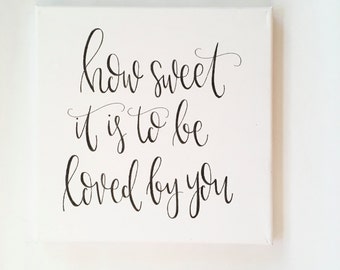 how sweet
it is to be
loved by you